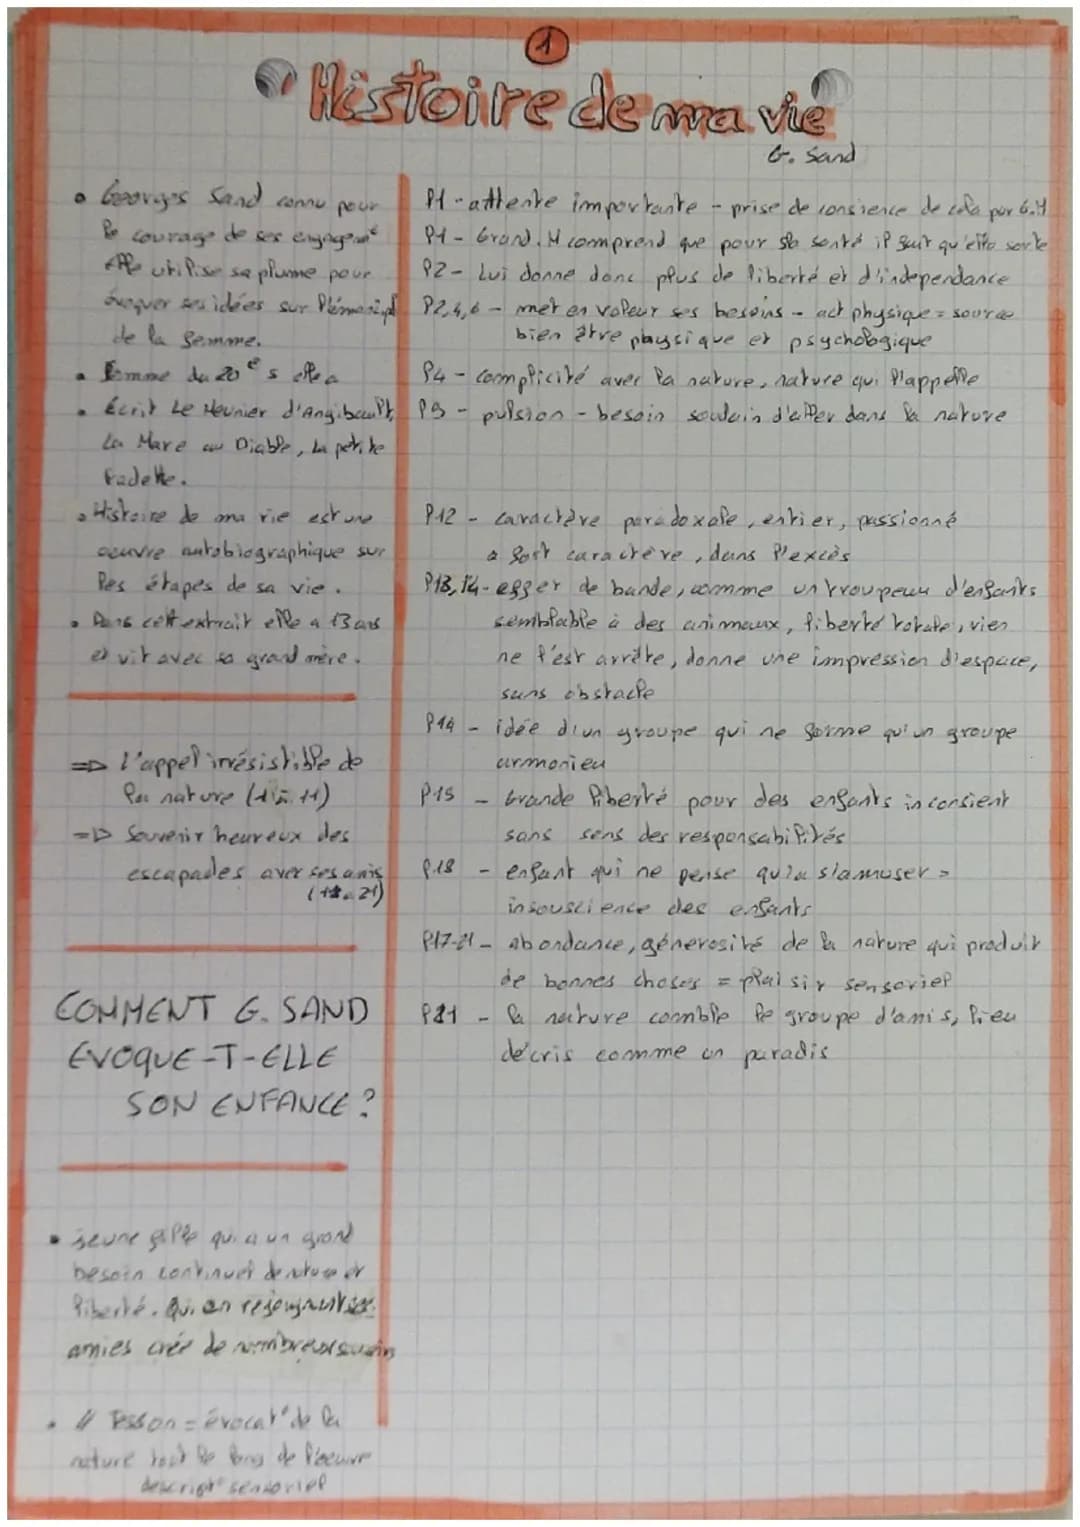 1
Histoire de ma vie
G. Sand
• Georges Sand connu pour
le courage de ses engagemt
elle utilise sa plume pour
évoquer ses idées sur l'émancipt
de la femme.
• Femme du 20e s elle a
• Écrit Le Meunier d'Angibault,
La Mare au Diable, La petite
Fadette.
• Histoire de ma vie est une
oeuvre autobiographique sur
les étapes de sa vie.
• Dans cett extrait elle a 13 ans
et vit avec sa grand mère.
=> L'appel irrésistible de
la nature (1 à 11)
=> Souvenir heureux des
escapades avec ses amis
(12 à 21)
COMMENT G. SAND
EVOQUE-T-ELLE
SON ENFANCE ?
• jeune fille qui a un grand
besoin continuel de nature et
liberté. Qui en rejoignant ses
amies crée de nombreux souvenirs
• // Tesson = évocat° de la
nature tout le long de l'oeuvre
descript° sensoriel
P1 - attente importante - prise de consience de cela par G.M
P1 - Grand.M comprend que pour sa santé il faut qu'elle sorte
P2 - Lui donne donc plus de liberté et d'independance
P2,4,6 - met en valeur ses besoins - act physique = source
bien être physique et psychologique
P4 - complicité avec la nature, nature qui l'appelle
P9 - pulsion - besoin soudain d'aller dans la nature
P12 - caractère paradoxale, entier, passionné
a fort caractère, dans l'excès
P13,14 - effer de bande, comme un troupeau d'enfants
semblable à des animaux, liberté totale, rien
ne l'est arrête, donne une impression d'espace,
sans obstacle
P14 - idée d'un groupe qui ne forme qu'un groupe
armonieu
P15 - Grande liberté pour des enfants inconsient
sans sens des responsabilités
P.18 - enfant qui ne pense qu'a s'amuser =
insouscience des enfants
P17-21 - abondance, génerosité de la nature qui produit
de bonnes choses = plaisir sensoriel
P21 - la nature comble le groupe d'amis, lieu
décris comme un paradis